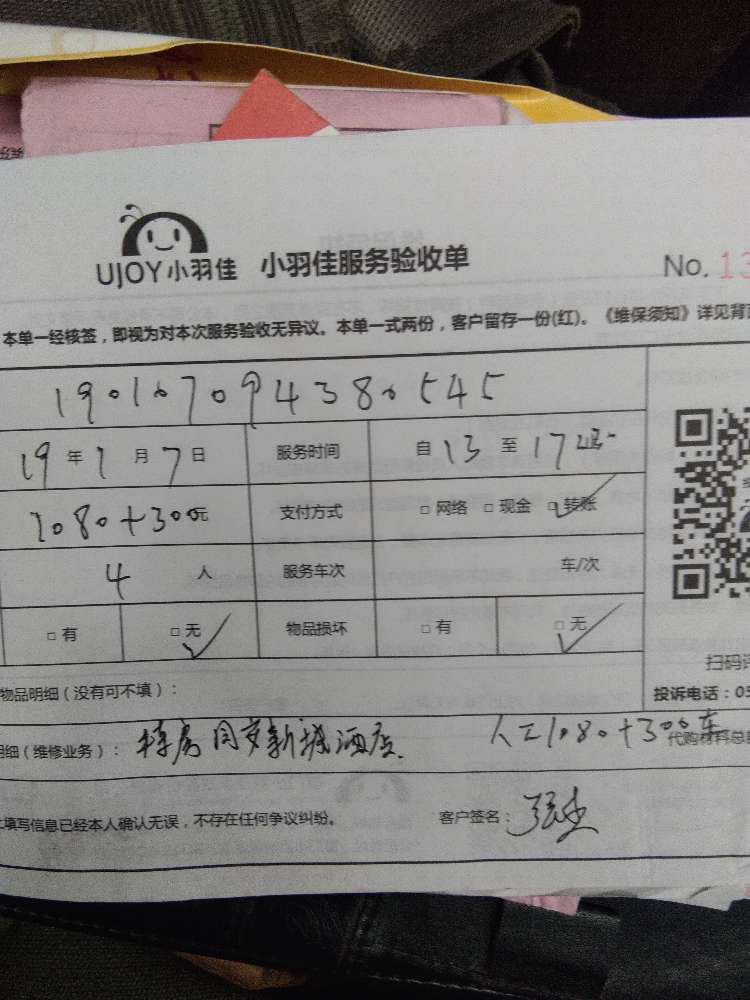 UJOY小羽佳 小羽佳服务验收单 No. 13
本单一经核签，即视为对本次服务验收无异议。本单一式两份，客户留存一份(红)。《维保须知》详见背
190107094380545
19年1月7日 服务时间 自13至17
1080+300元 支付方式 □网络 □现金 □转账
4人 服务车次 车/次
□有 □无 物品损坏 □有 □无
扫码
物品明细（没有可不填）： 投诉电话：05
明细（维修业务）： 新城酒店 人工1080+300车
代购材料总
填写信息已经本人确认无误，不存在任何争议纠纷。 客户签名：